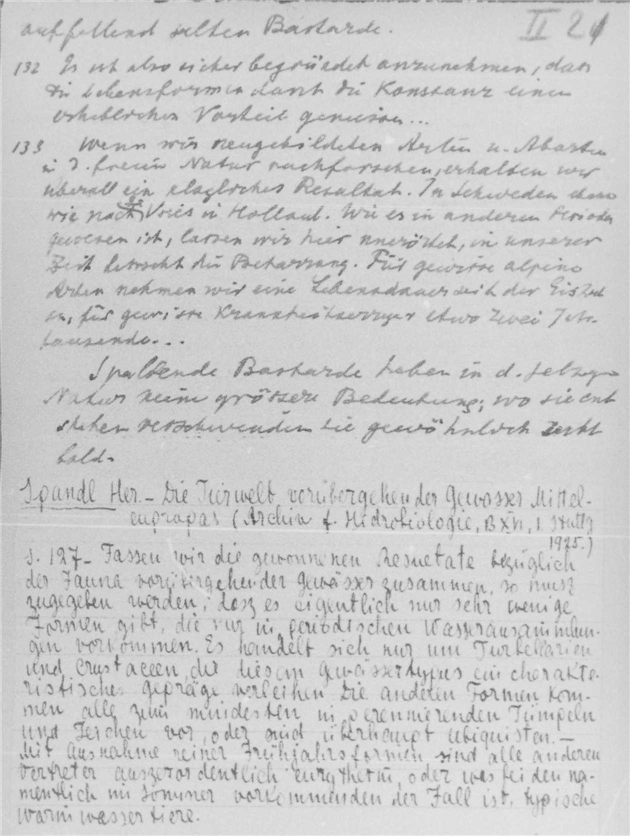 auffallend selten Bastarde. II 21
132 Es ist also sicher begründet anzunehmen, dass
die Lebensformen durch die Konstanz einen
erheblichen Vorteil geniessen...
133 Wenn wir neugebildeten Arten u. Abarten
in d. freien Natur nachforschen, erhalten wir
überall ein klägliches Resultat. In Schweden eben
wie nach Vries in Holland. Wie es in anderen Perioden
gewesen ist, lassen wir hier unerörtert, in unserer
Zeit herrscht die Beharrung. Für gewisse alpine
Arten nehmen wir eine Lebensdauer seit der Eiszeit
an, für gewisse Krankheitserreger etwa zwei Jahr-
tausende...
Spaltende Bastarde haben in d. jetzigen
Natur keine grössere Bedeutung; wo sie ent
stehen verschwinden sie gewöhnlich recht
bald.
Spandl Her. – Die Tierwelt vorübergehender Gewässer Mittel-
europas (Archiv f. Hidrobiologie, B XVI, 1. Stuttg
1925.)
S. 127 – Fassen wir die gewonnenen Resultate bezüglich
der Fauna vorübergehender Gewässer zusammen, so musz
zugegeben werden, dasz es eigentlich nur sehr wenige
Formen gibt, die nur in periodischen Wasseransammlun-
gen vorkommen. Es handelt sich nur um Turbellarien
und Crustaceen, die diesem Gewässertypus ein charakte-
ristisches gepräge verleihen. Die anderen Formen kom-
men alle zum mindesten in perennierenden Tümpeln
und Teichen vor, oder sind überhaupt Ubiquisten. –
Mit Ausnahme reiner Frühjahrsformen sind alle anderen
Vertreter auszerordentlich eurytherm, oder was bei den na-
mentlich im Sommer vorkommenden der Fall ist, typische
Warmwassertiere.